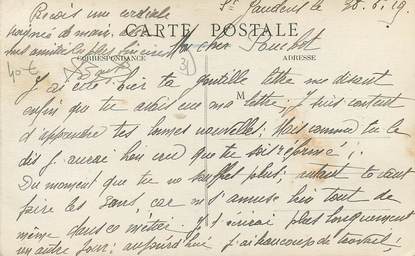 Reçois une cordiale
poignée de main, de
mes amitiés les plus sincères
St Gaudens le 28.6.19.
CARTE POSTALE
Mon cher
CORRESPONDANCE
ADRESSE
40 €
31
M
J'ai reçu hier ta gentille lettre me disant
enfin que tu avais eu ma lettre; Je suis content
d'apprendre tes bonnes nouvelles; Mais comme tu le
dis j'aurai bien cru que tu sois réformé;
Du moment que tu ne souffres plus; autant te vaut
faire les 3 ans, car on s'amuse bien tout de
même dans ce métier; Je t'écrirai plus longuement
un autre jour; aujourd'hui j'ai beaucoup de travail;